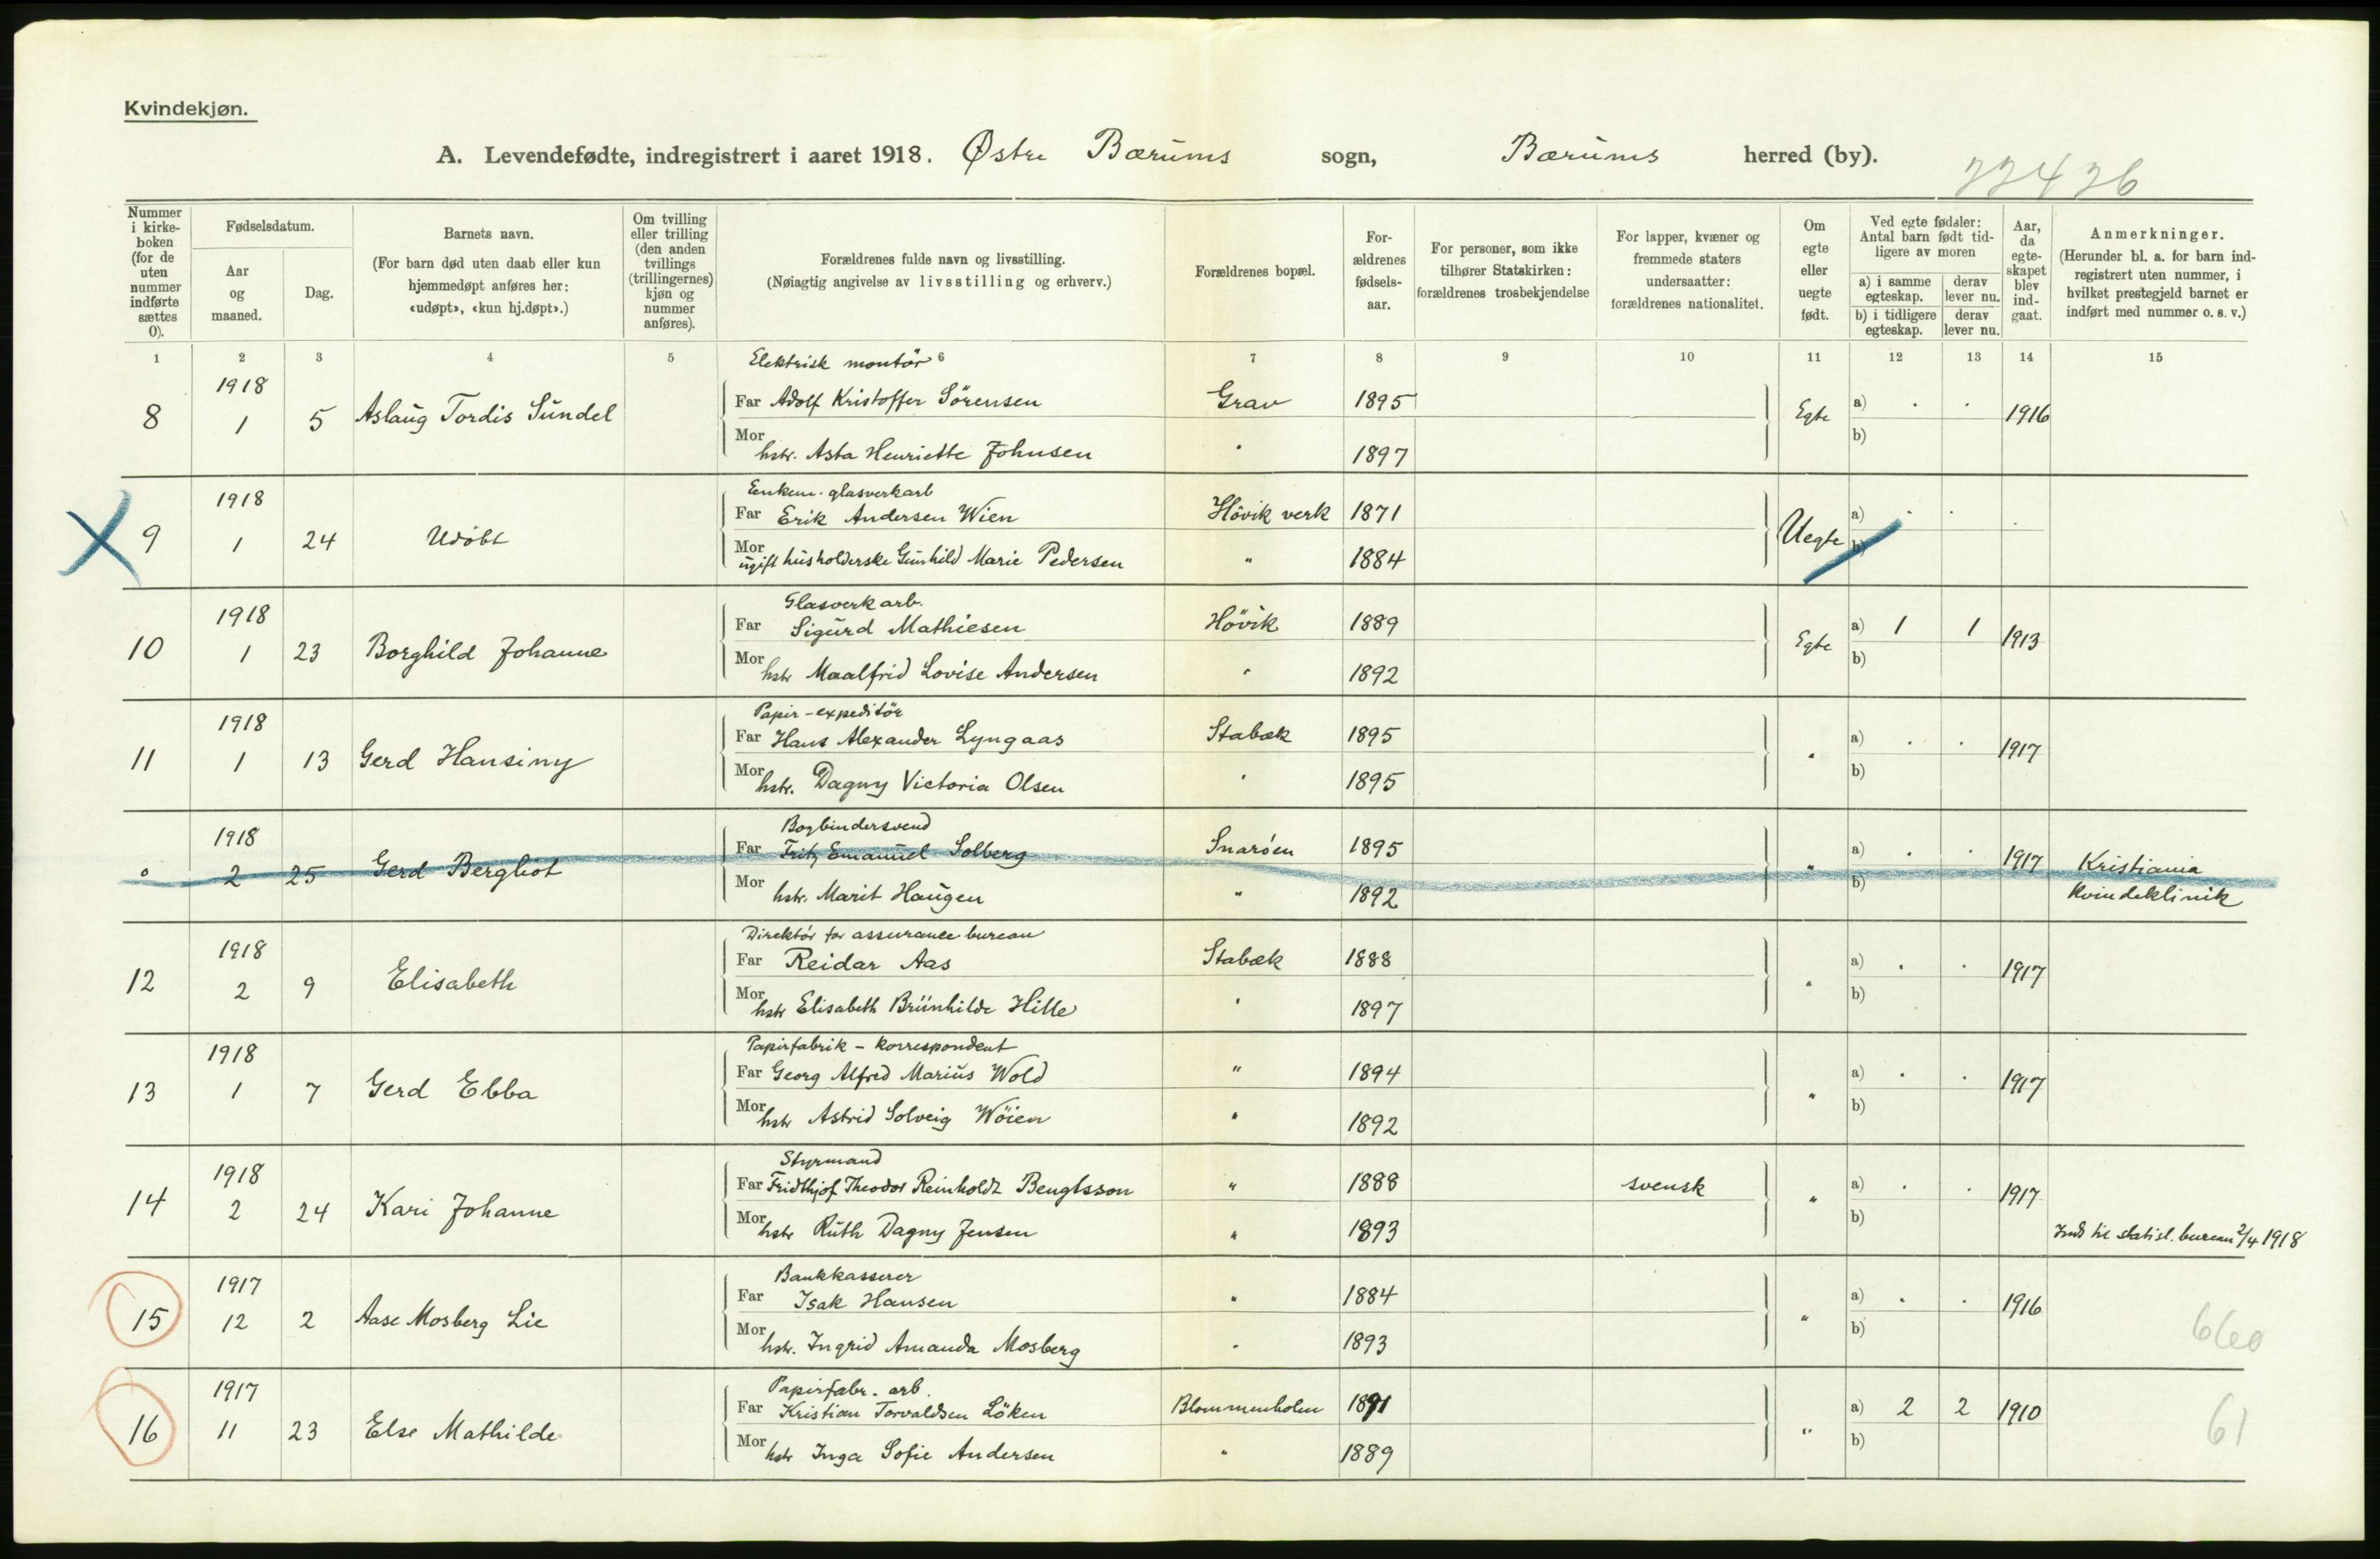 Kvindekjøn.
A. Levendefødte, indregistrert i aaret 1918. Østre Bærums sogn, Bærums herred (by).
22426
Nummer i kirkeboken (for de uten nummer indførte sættes 0).
Fødselsdatum.
Aar og maaned.
Dag.
Barnets navn.
(For barn død uten daab eller kun hjemmedøpt anføres her: «udøpt», «kun hj.døpt».)
Om tvilling eller trilling (den anden tvillings (trillingernes) kjøn og nummer anføres).
Forældrenes fulde navn og livsstilling.
(Nøiagtig angivelse av livsstilling og erhverv.)
Forældrenes bopæl.
Forældrenes fødselsaar.
For personer, som ikke tilhører Statskirken: forældrenes trosbekjendelse
For lapper, kvæner og fremmede staters undersaatter: forældrenes nationalitet.
Om egte eller uegte født.
Ved egte fødsler: Antal barn født tidligere av moren
a) i samme egteskap. derav lever nu.
b) i tidligere egteskap. derav lever nu.
Aar, da egteskapet blev indgaat.
Anmerkninger.
(Herunder bl. a. for barn indregistrert uten nummer, i hvilket prestegjeld barnet er indført med nummer o. s. v.)
1 2 3 4 5 6 7 8 9 10 11 12 13 14 15
Elektrisk montör
8 1918 1 5 Aslaug Tordis Sundel Far Adolf Kristoffer Sörensen Grav 1895 Egte a) . . 1916
Mor hstr. Asta Henriette Johnsen " 1897 b)
glasverkarb
9 1918 1 24 Udöbt Far Erik Andersen Wien Hövik verk 1871 Uegte a) . . .
Mor ugift husholderske Gunhild Marie Pedersen " 1884 b)
Glasverkarb.
10 1918 1 23 Borghild Johanne Far Sigurd Mathiesen Hövik 1889 Egte a) 1 1 1913
Mor hstr Maalfrid Lovise Andersen " 1892 b)
Papir-expeditör
11 1918 1 13 Gerd Hansiny Far Hans Alexander Lyngaas Stabæk 1895 " a) . . 1917
Mor hstr. Dagny Victoria Olsen " 1895 b)
Bogbindersvend
0 1918 2 25 Gerd Bergliot Far Fritz Emanuel Solberg Snaröen 1895 " a) . . 1917 Kristiania
Mor hstr. Marit Haugen " 1892 b) Kvindeklinik
Direktör for assurance bureau
12 1918 2 9 Elisabeth Far Reidar Aas Stabæk 1888 " a) . . 1917
Mor hstr Elisabeth Brünhilde Hille " 1897 b)
Papirfabrik - korrespondent
13 1918 1 7 Gerd Ebba Far Georg Alfred Marius Wold " 1894 " a) . . 1917
Mor hstr Astrid Solveig Wöien " 1892 b)
Styrmand
14 1918 2 24 Kari Johanne Far Fridthjof Theodor Reinholdt Bengtsson " 1888 svensk " a) . . 1917
Mor hstr Ruth Dagny Jensen " 1893 b) Inds til statist. bureau 2/4 1918
Bankkasserer
15 1917 12 2 Aase Mosberg Lie Far Isak Hansen " 1884 " a) . . 1916
Mor hstr. Ingrid Amanda Mosberg " 1893 b) 660
Papirfabr. arb.
16 1917 11 23 Else Mathilde Far Kristian Torvaldsen Löken Blommenholm 1891 " a) 2 2 1910
Mor hstr Inga Sofie Andersen " 1889 b) 61